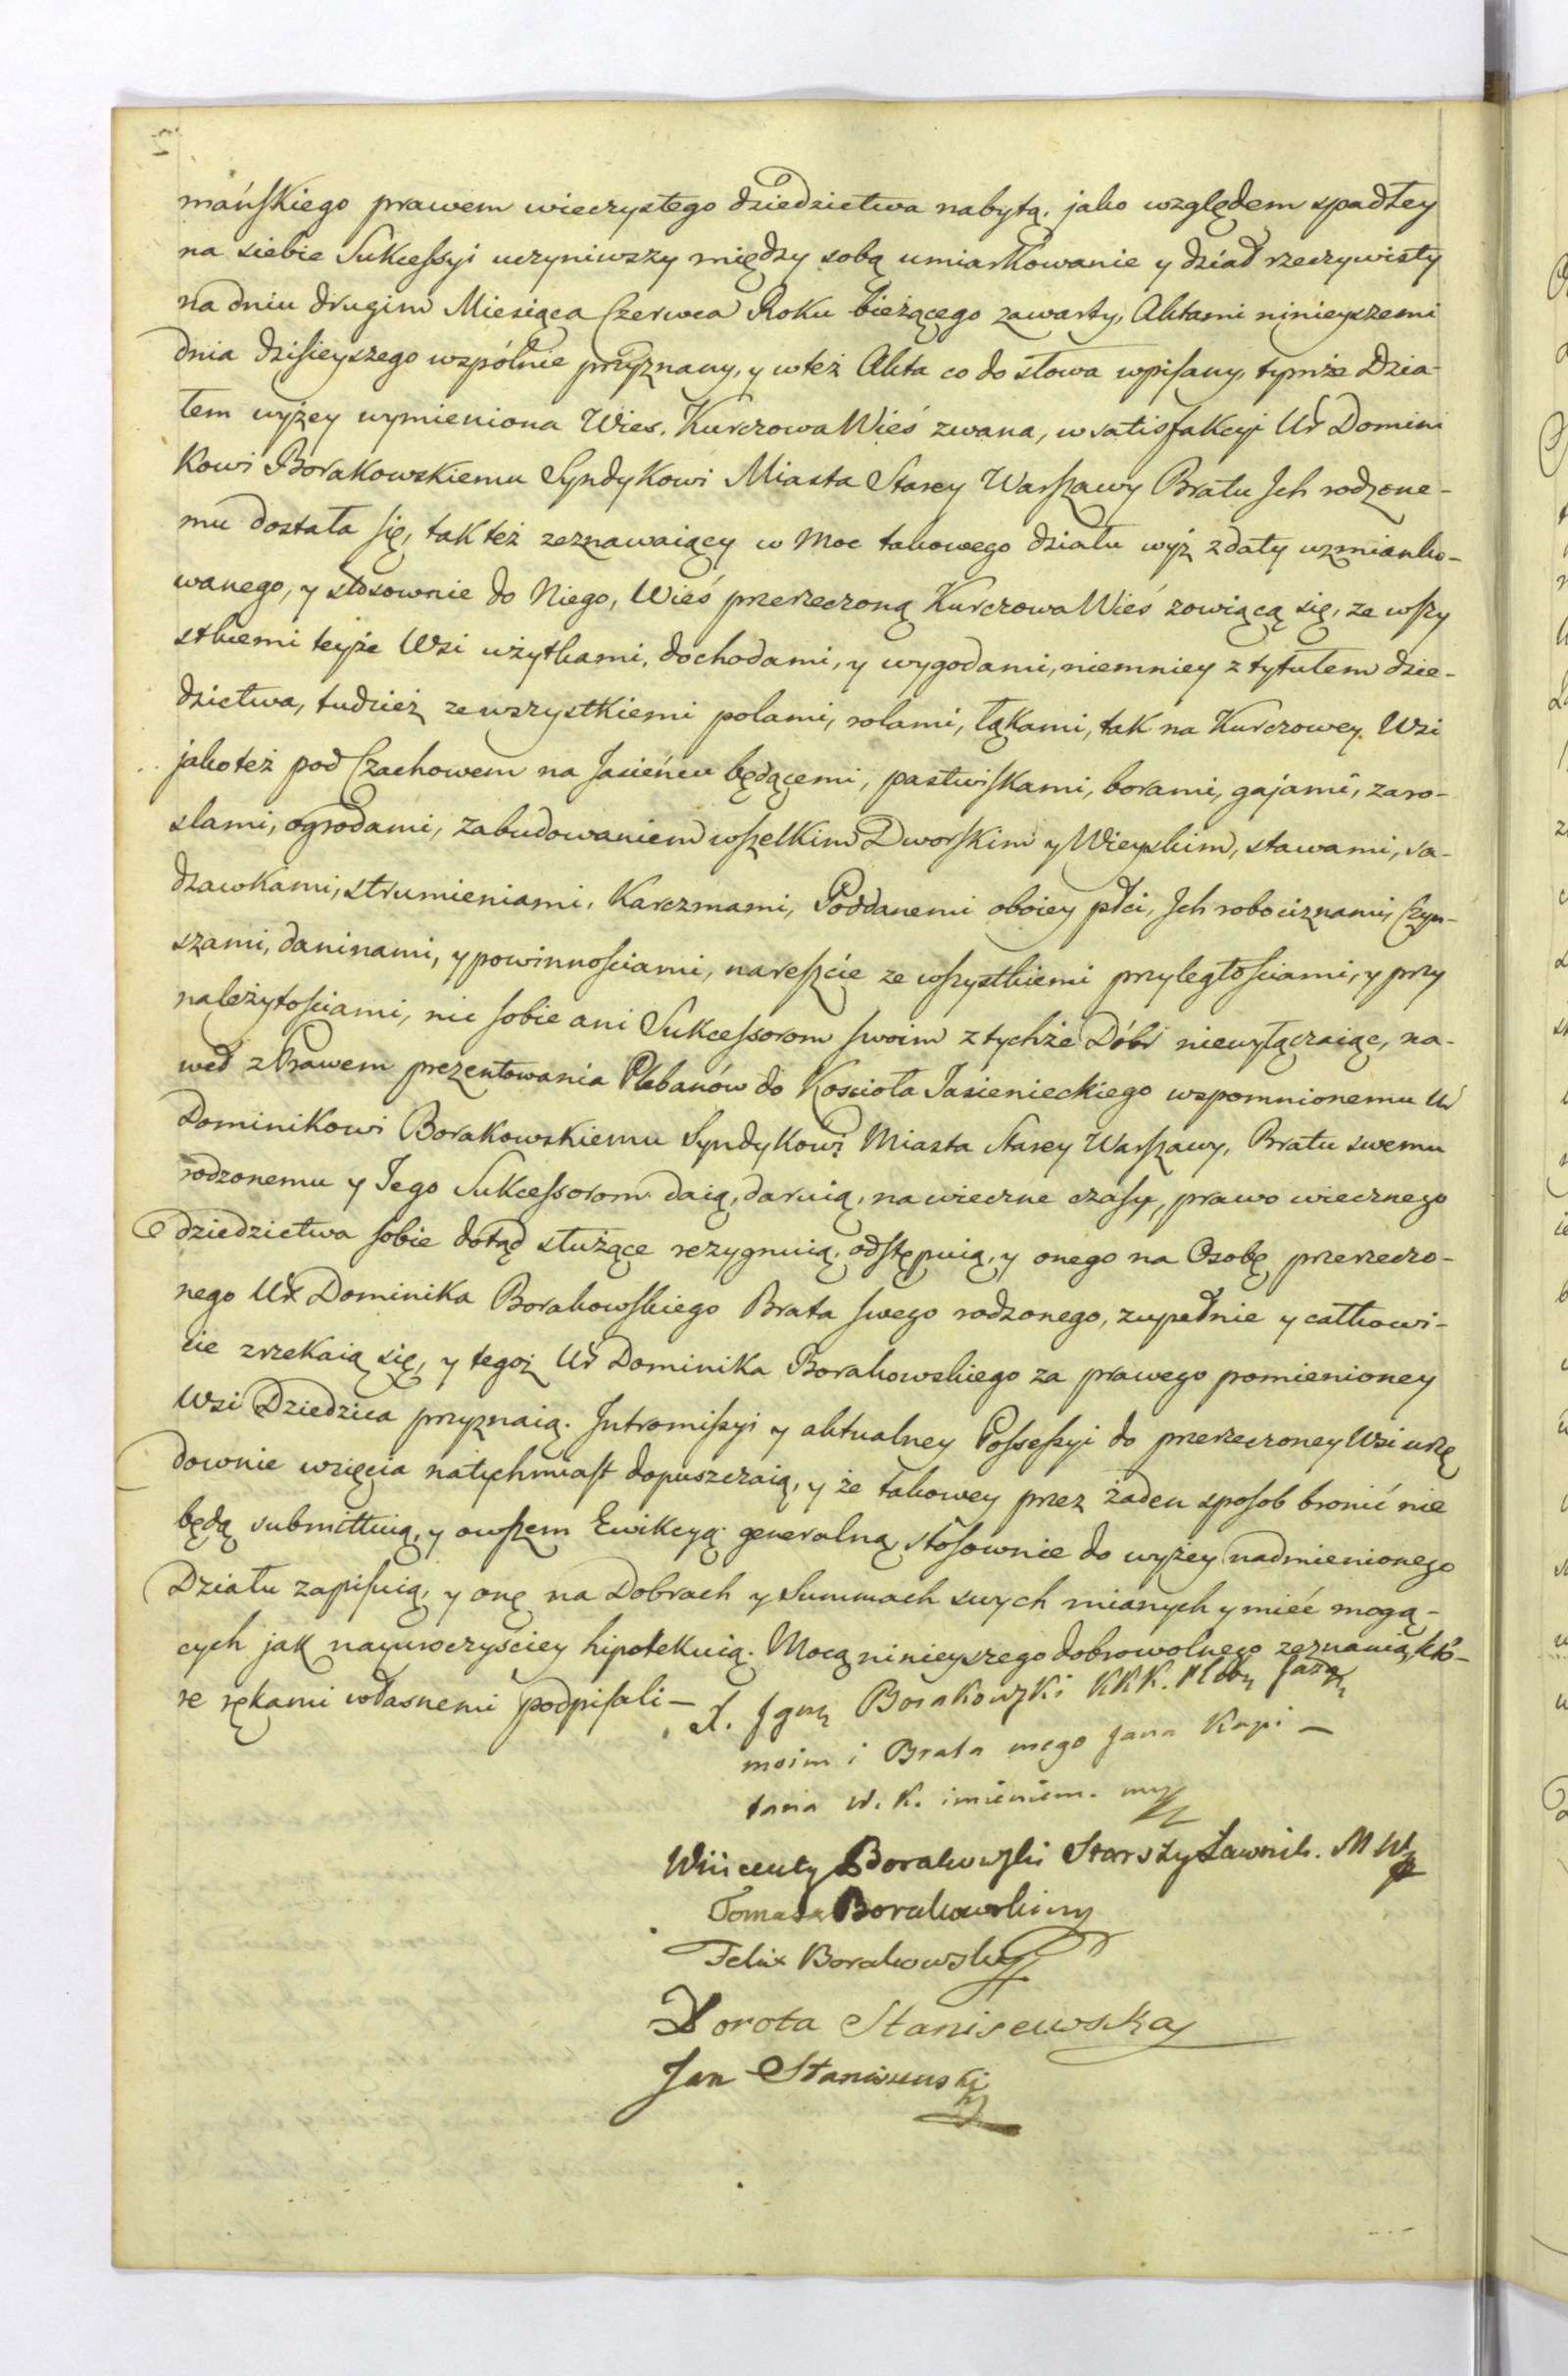 mańskiego prawem wieczystego dziedzictwa nabytą, jako względem spadłey
na siebie Sukcessyi uczyniwszy między sobą umiarkowanie y dział rzeczywisty
na dniu drugim Miesiąca Czerwca Roku bieżącego zawarty, Aktami ninieyszemi
dnia dzisieyszego wspólnie przyznany, y w też Akta co do słowa wpisany, tymże Dzia-
łem wyżey wymieniona Wies. Kurczowa Wieś zwana, w satisfakcyi Ur Domini
kowi Borakowskiemu Syndykowi Miasta Starey Warszawy Bratu Ich rodzone-
mu dostała się, tak też zeznawaiący w Moc takowego działu wyż z daty wzmianko-
wanego, y stosownie do Niego, Wieś przerzeczoną Kurczowa Wieś zowiącą się, ze wszy
stkiemi teyże Wsi użytkami, dochodami, y wygodami, niemniey z tytułem dzie-
dzictwa, tudzież ze wszystkiemi polami, rolami, łąkami, tak na Kurczowey Wsi
jako też pod Czachowem na Jasieńcu będącemi, pastwiskami, borami, gajami, zaro-
slami, ogrodami, zabudowaniem wszelkim Dworskim y Wieyskim, stawami, sa-
dzawkami, strumieniami, Karczmami, Poddanemi oboiey płci, Ich robociznami, Czyn-
szami, daninami, y powinnościami, nareszcie ze wszystkiemi przyległościami, y przy
należytościami, nic sobie ani Sukcessorom swoim z tychże Dóbr niewyłączaiąc, na-
wed z Prawem prezentowania Plebanów do Kościoła Jasienieckiego wspomnionemu Ur
Dominikowi Borakowskiemu Syndykowi Miasta Starey Warszawy, Bratu swemu
rodzonemu y Jego Sukcessorom daią, daruią, na wieczne czasy, prawo wiecznego
dziedzictwa sobie dotąd służące rezygnuią, odstępuią, y onego na Osobę przerzeczo-
nego Ur Dominika Borakowskiego Brata swego rodzonego, zupełnie y całkowi-
cie zrzekaią się, y tegoż Ur Dominika Borakowskiego za prawego pomienioney
Wsi Dziedzica przyznaią. Intromissyi y aktualney Possessyi do przerzeczoney Wsi urzę
downie wzięcia natychmiast dopuszczaią, y że takowey przez żaden sposob bronić nie
będą submittuią, y owszem Ewikcyą generalną stosownie do wyżey nadmienionego
Działu zapisuią, y onę na Dobrach y Summach swych mianych y mieć mogą-
cych jak nayuroczyściey hipotekuią. Mocą ninieyszego dobrowolnego zeznania, któ-
re rękami własnemi podpisali —
X. Ignacy Borakowski KKK.
moim i Brata mego Jana Kapi —
tana W. K. imieniem. mp
Wincenty Borakowski Starszy Ławnik. M W
Tomasz Borakowski mp
Felix Borakowski
Dorota Staniszewska
Jan Staniszewski